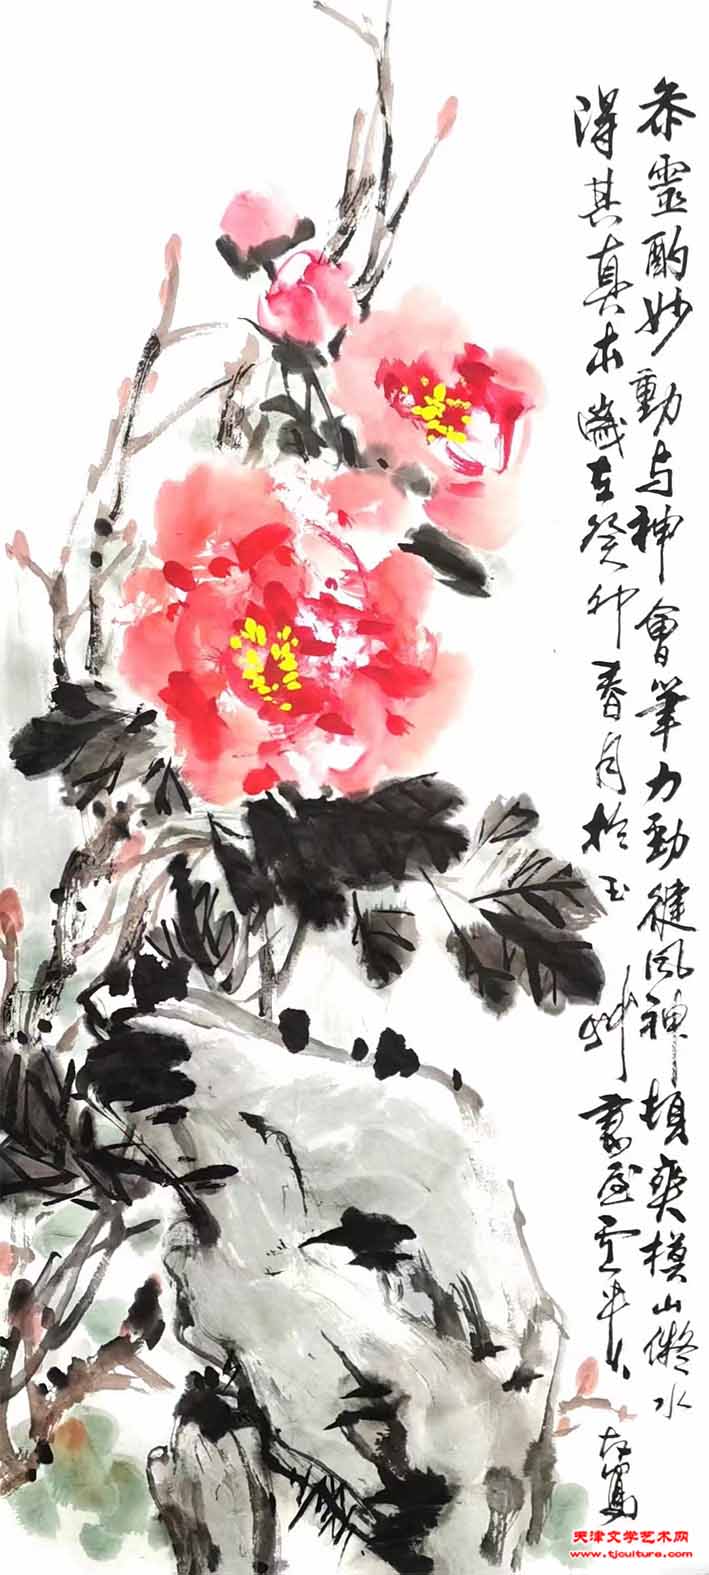 叅靈酌妙動与神會筆力勁健風神頓爽模山儗水
得其真本歲在癸卯春月於玉艸書屋
天津文学艺术网
www.tjculture.com